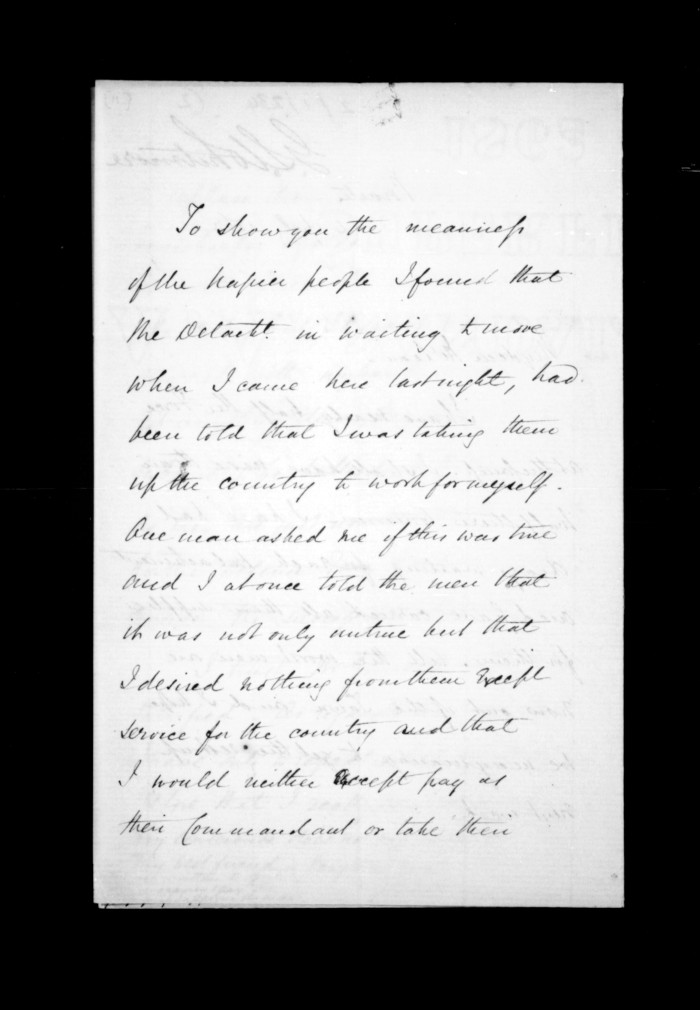 To show you the meanness
of the Napier people I found that
the Detacht. in waiting to move
when I came here last night, had
been told that I was taking them
up the country to work for myself.
One man asked me if this was true
and I at once told the men that
it was not only untrue but that
I desired nothing from them Except
service for the country and that
I would neither accept pay as
their Commandant or take them